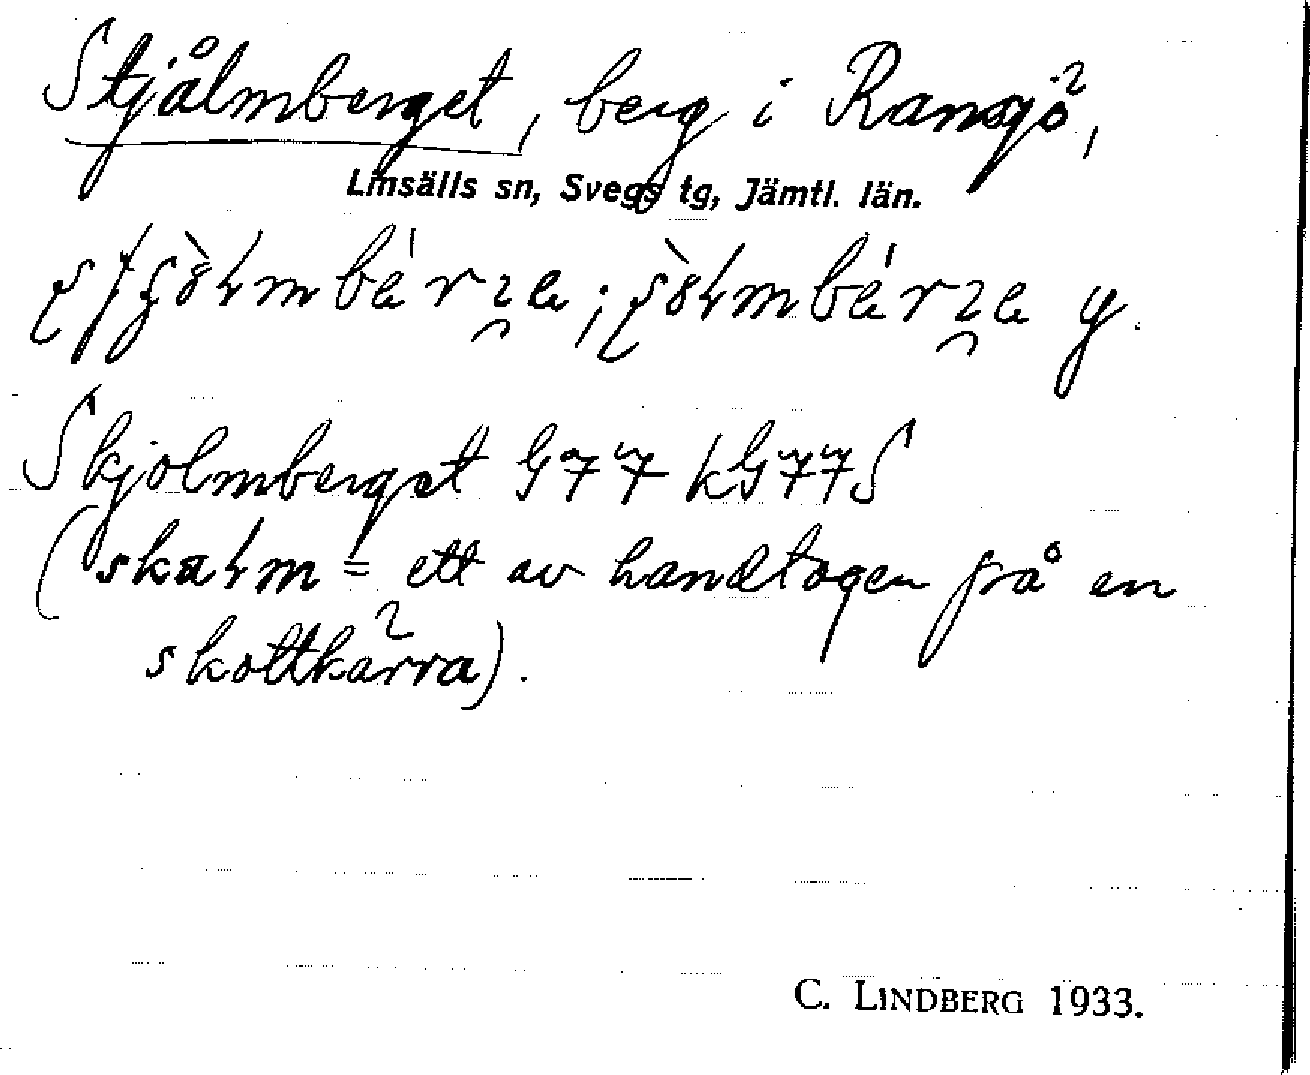 Stjålmberget, berg i Ransjö,
Linsälls sn, Svegs tg, Jämtl. län.
Skjolmberget G77 kG77S
(skaɫm = ett av handtagen från en
skottkärra).
C. LINDBERG 1933.